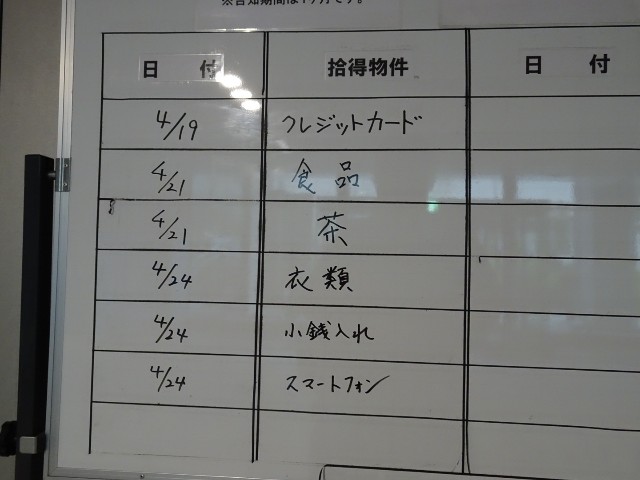 ※告知期間は1ヶ月です。
日 付 拾得物件 日 付
4/19 クレジットカード
4/21 食品
4/21 茶
4/24 衣類
4/24 小銭入れ
4/24 スマートフォン